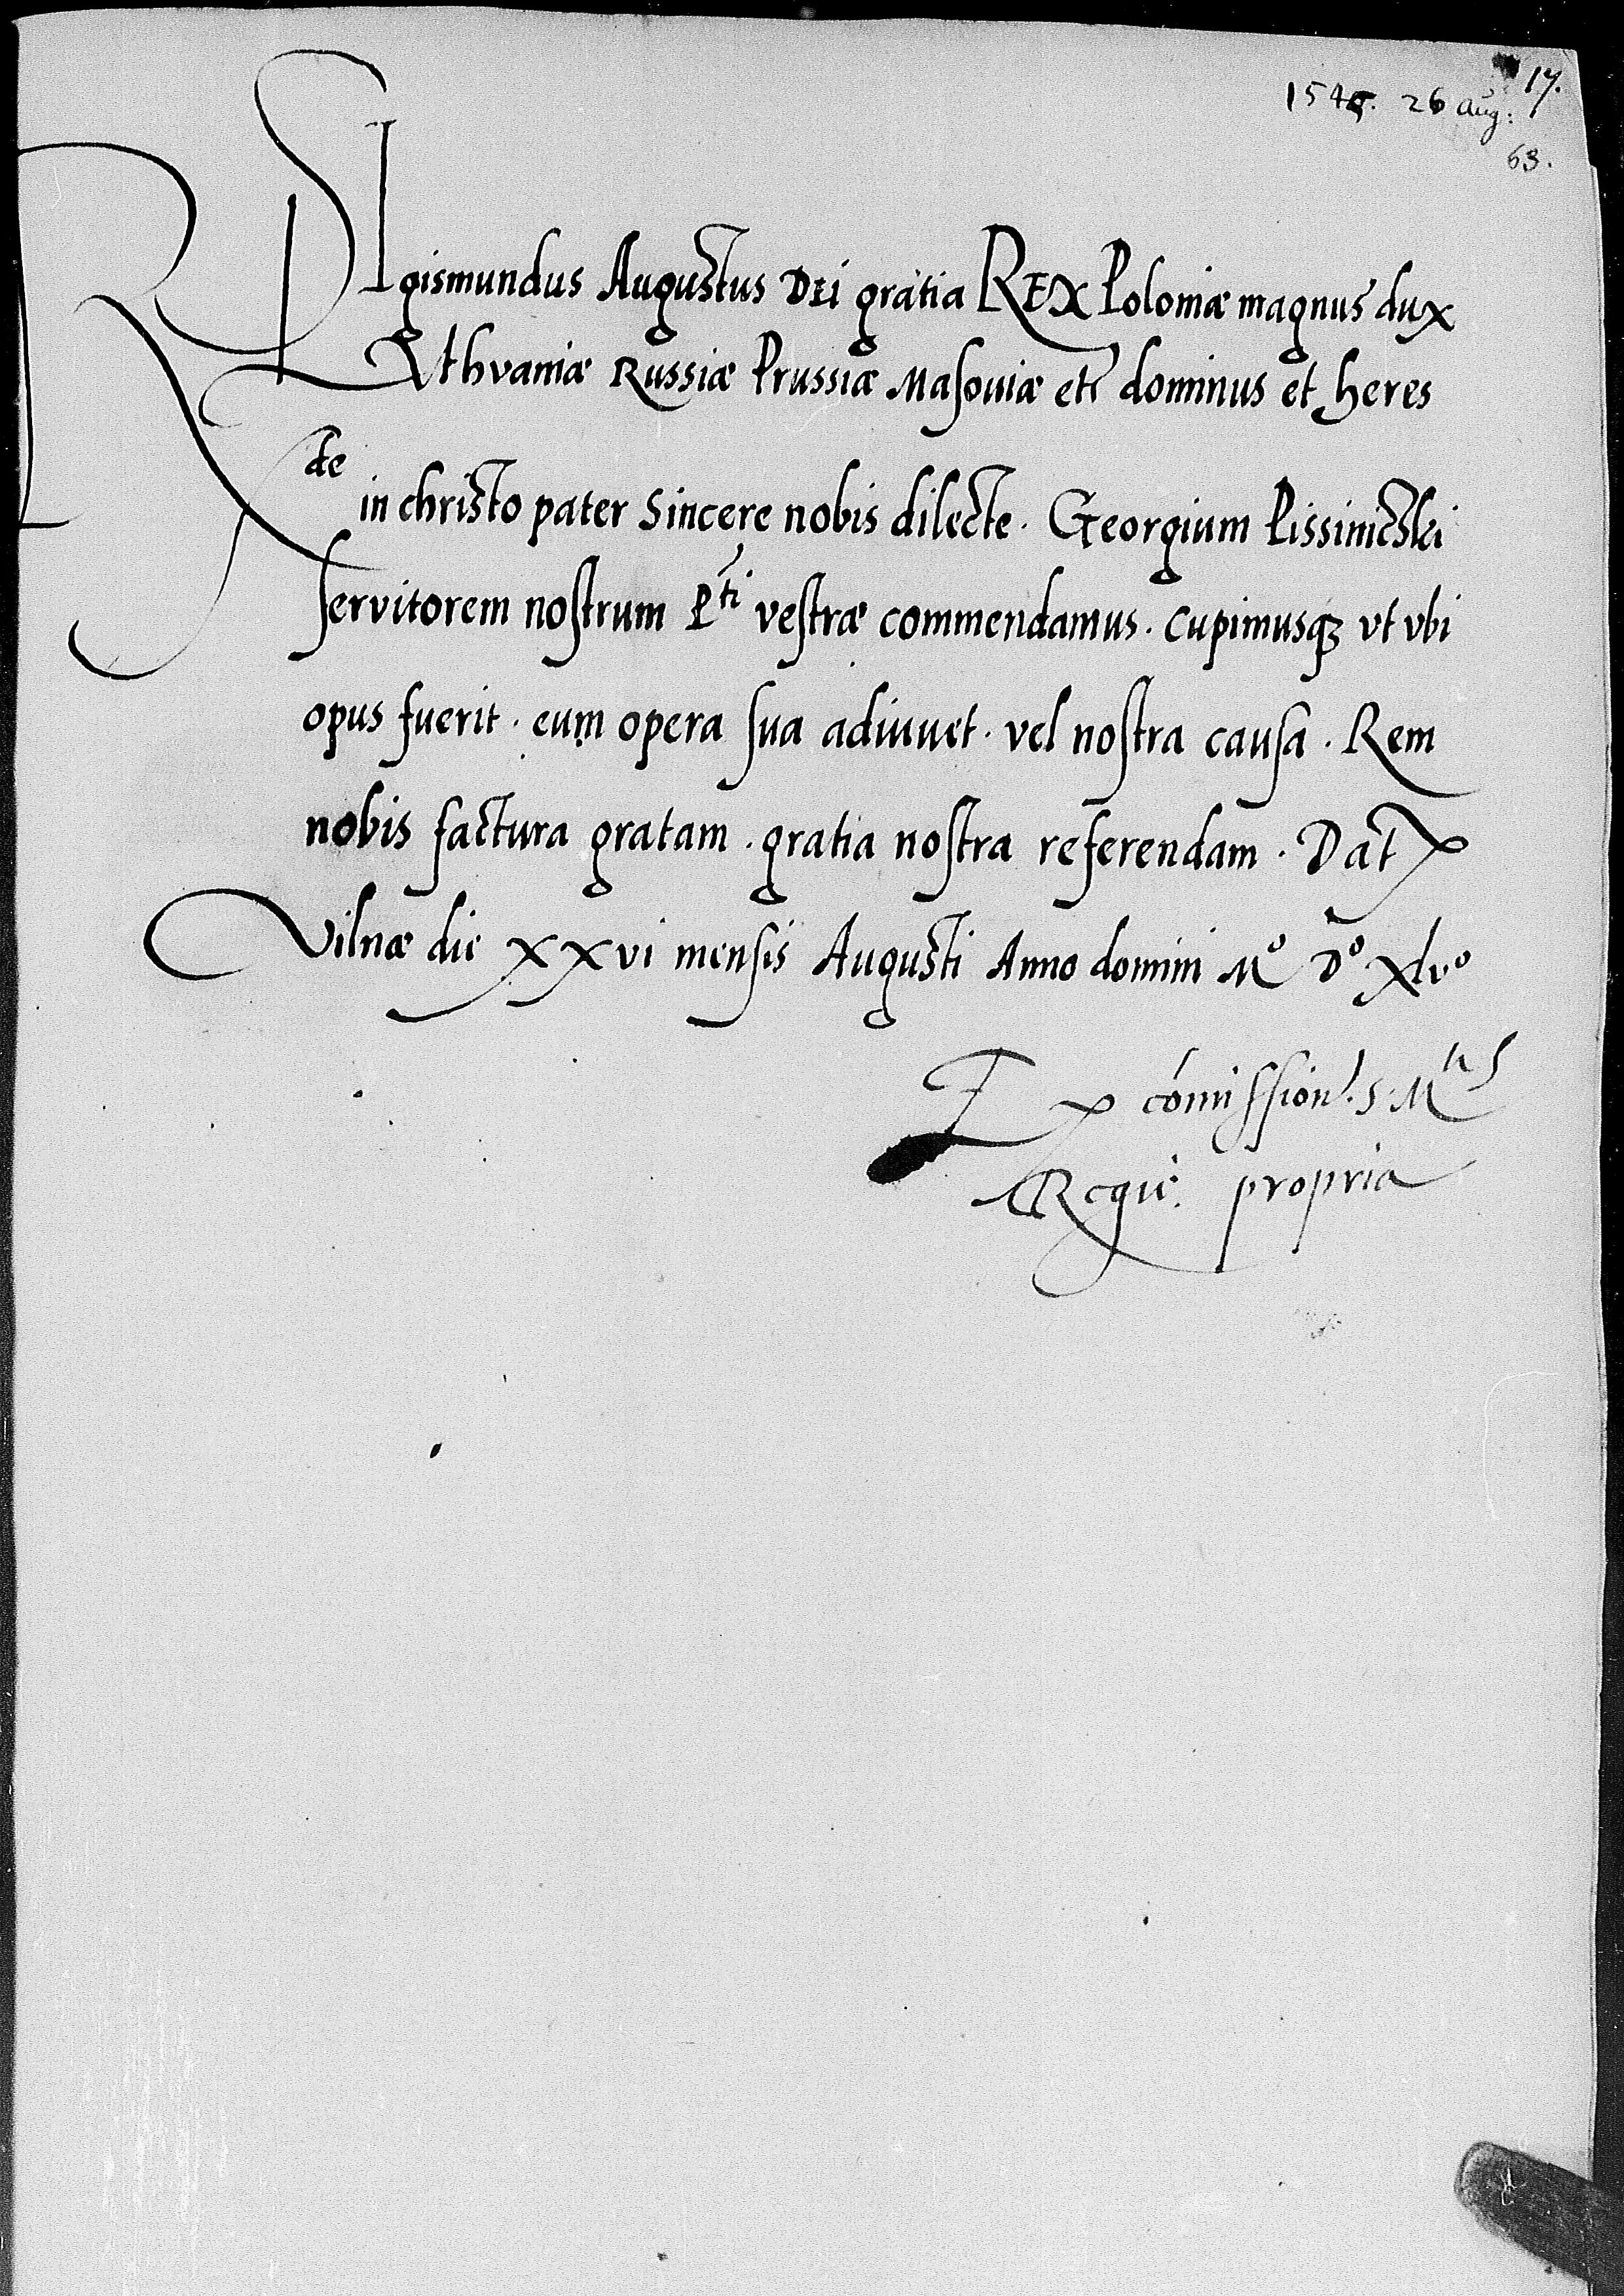 17.
1545. 26 Aug:
63.
SIgismundus Augustus DEi gratia REX Poloniæ magnus dux
Lithvaniæ Russiæ Prussiæ Masoviæ etc dominus et heres
Rde in christo pater sincere nobis dilecte. Georgium
servitorem nostrum P.ti vestræ commendamus. cupimusqз vt vbi
opus fuerit. eum opera sua adiuvet. vel nostra causa. Rem
nobis factura gratam. gratia nostra referendam. Dat
Vilnæ die XXvi mensis Augusti Anno domini Mo Do xlvo
Ex comission. S. Mtis
Regie. propria